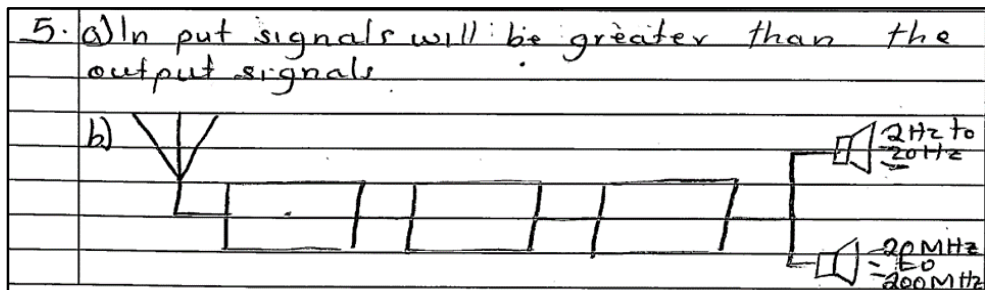 5. a) In put signals will be greater than the
output signals
b)
2Hz to
20Hz
20MHz
to
200MHz